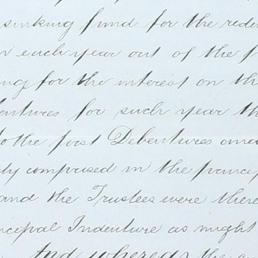 sinking fund for the rede
in each year out of the p
ing for the interest on th
entures for such year th
to the first Debentures
ly comprised in the princ
and the Trustees were there
ncipal Indenture as might
And whereas the